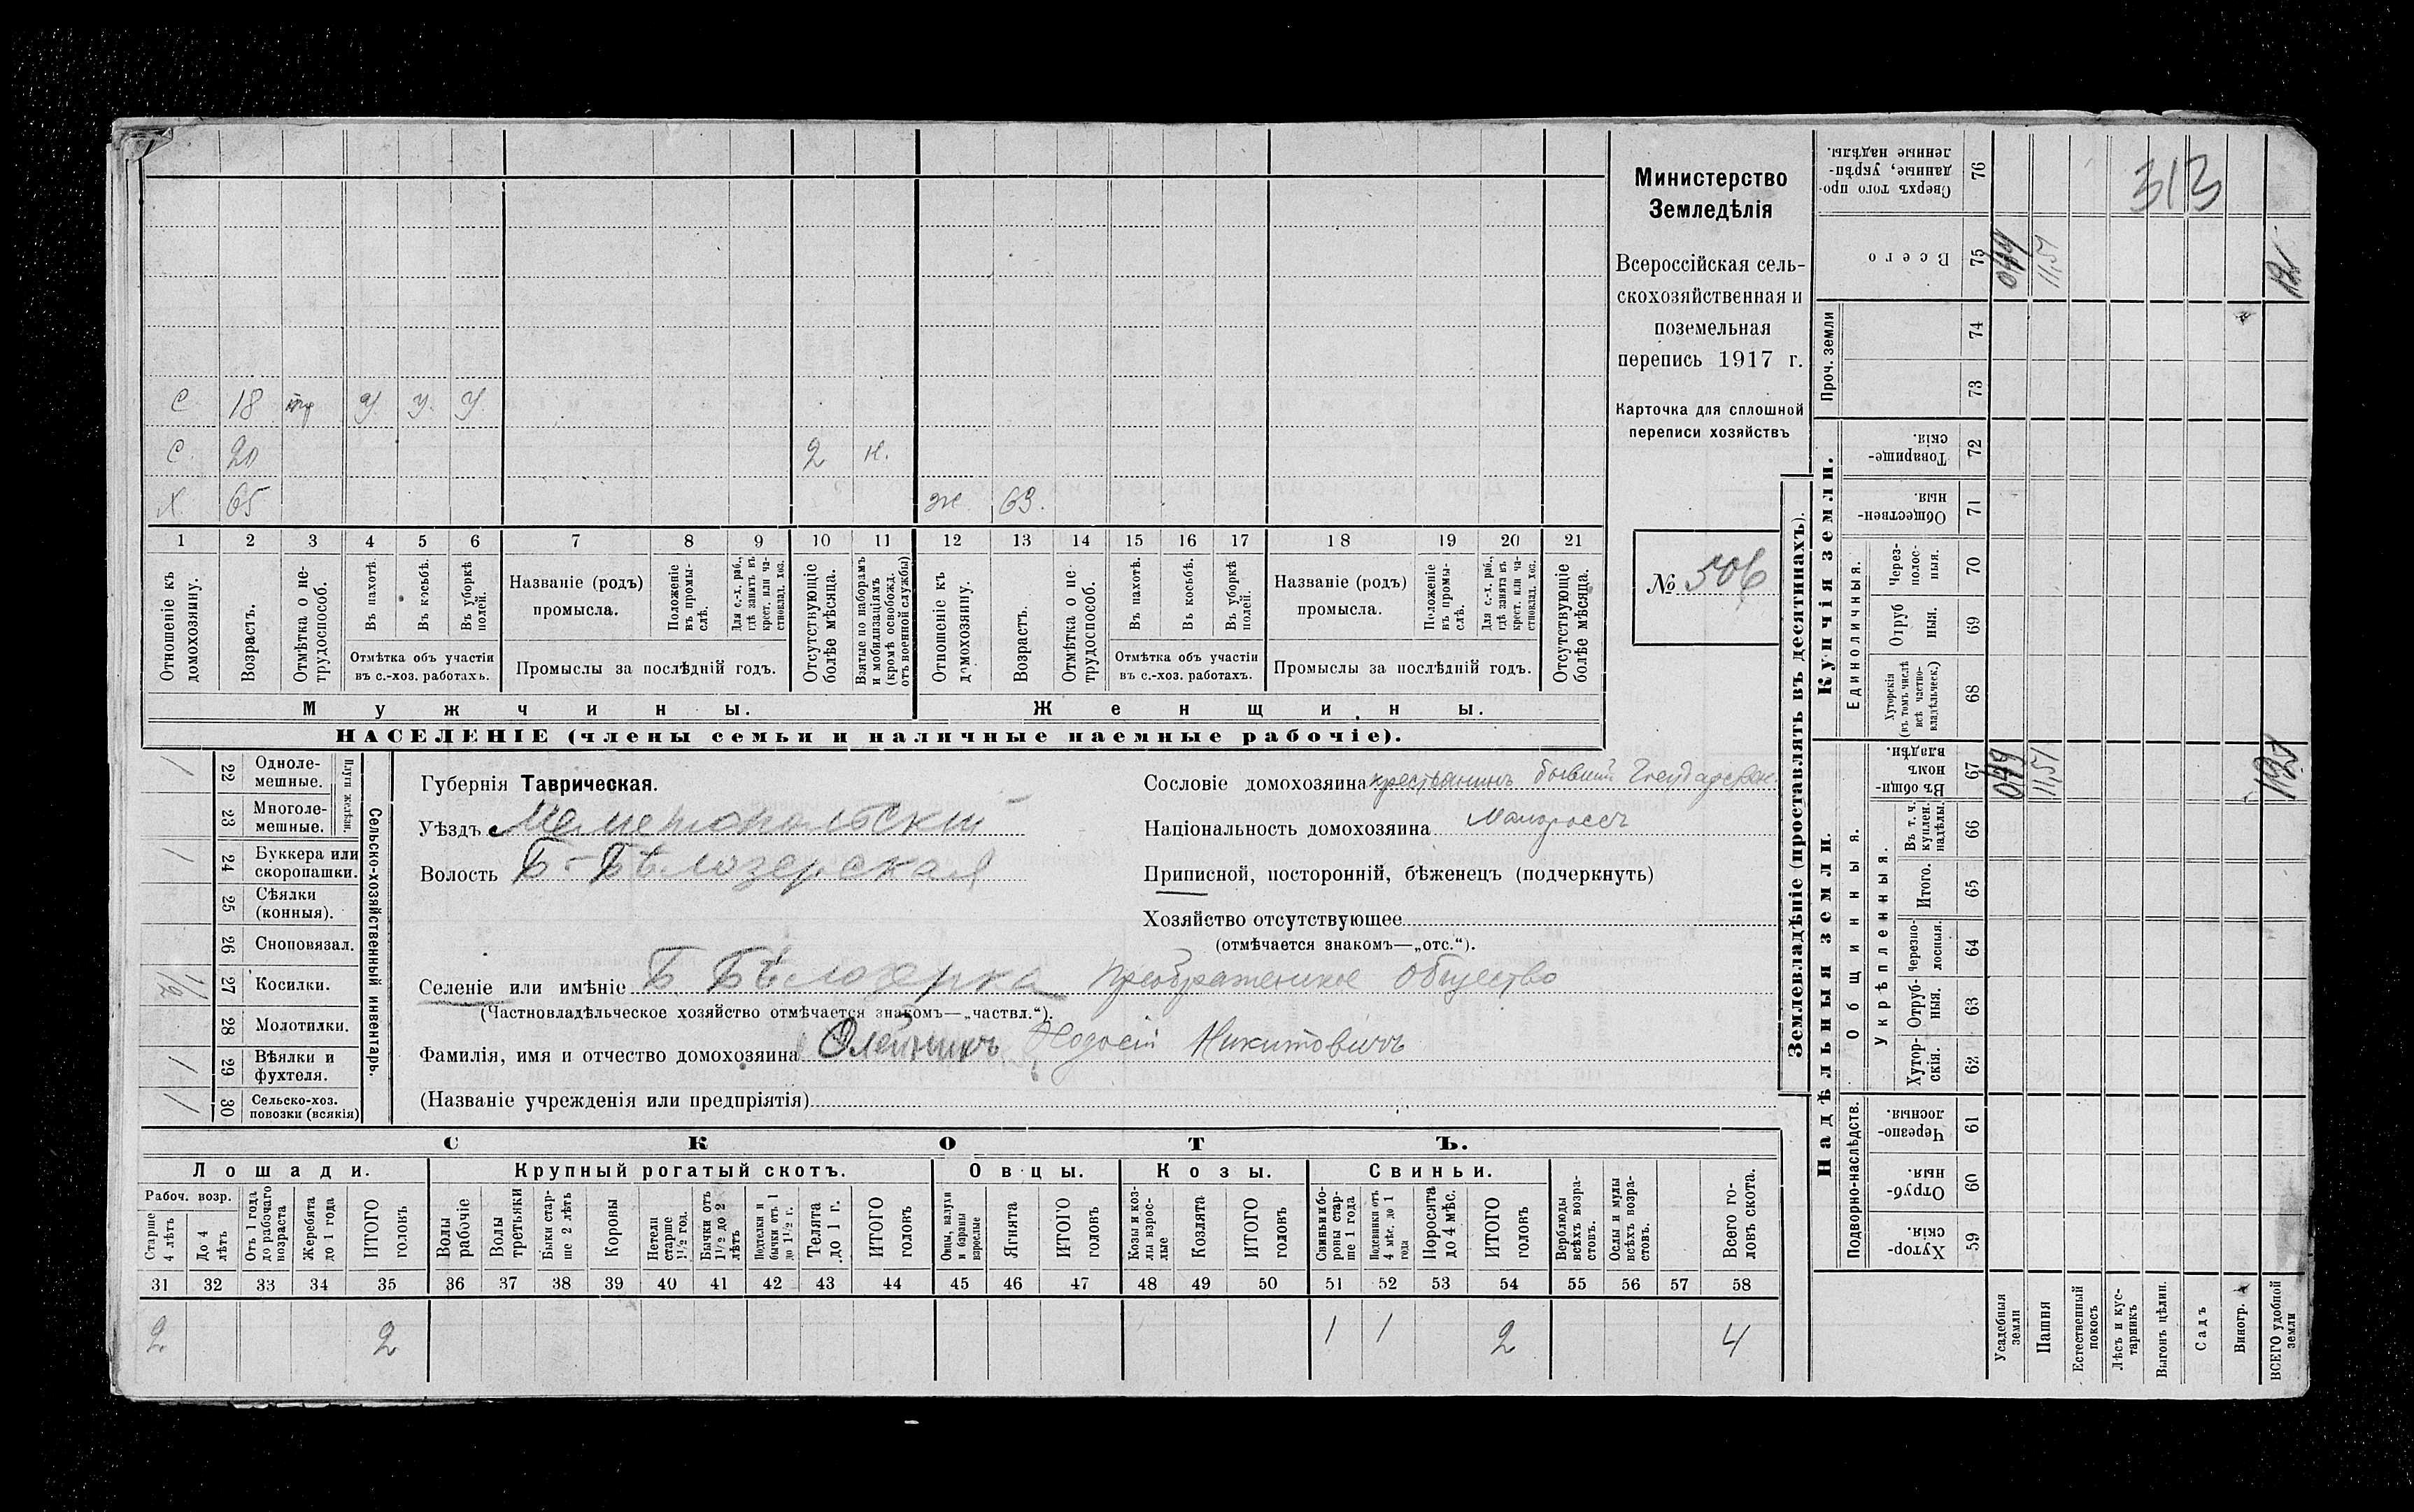 С 18 У У. У
С. 20 2 н.
Х. 65 ж. 63.
1 2 3 4 5 6 7 8 9 10 11 12 13 14 15 16 17 18 19 20 21
Отношеніе къ домохозяину.
Возрастъ.
Отмѣтка о нетрудоспособ.
Въ пахотѣ.
Въ косьбѣ.
Въ уборкѣ полей.
Отмѣтка объ участіи
въ с.-хоз. работахъ.
Названіе (родъ)
промысла.
Положеніе въ промыслѣ.
Для с.-х. раб., гдѣ занятъ въ крест. или частновлад. хоз.
Промыслы за послѣдній годъ.
Отсутствующіе болѣе мѣсяца.
Взятые по наборамъ и мобилизаціямъ (кромѣ освобожд. отъ военной службы)
Отношеніе къ домохозяину.
Возрастъ.
Отмѣтка о нетрудоспособ.
Въ пахотѣ.
Въ косьбѣ.
Въ уборкѣ полей.
Отмѣтка объ участіи
въ с.-хоз. работахъ.
Названіе (родъ)
промысла.
Положеніе въ промыслѣ.
Для с.-х. раб., гдѣ занята въ крест. или частновлад. хоз.
Промыслы за послѣдній годъ.
Отсутствующіе болѣе мѣсяца.
Мужчины. Женщины.
НАСЕЛЕНІЕ (члены семьи и наличные наемные рабочіе).
Министерство
Земледѣлія
Всероссійская сель-
скохозяйственная и
поземельная
перепись 1917 г.
Карточка для сплошной
переписи хозяйствъ
№ 506
Сельско-хозяйственный инвентарь.
Плуги желѣзн.
22 Одноле-
мешные. 1
23 Многоле-
мешные.
24 Буккера или
скоропашки. 1
25 Сѣялки
(конныя).
26 Сноповязал.
27 Косилки. 1/2
28 Молотилки.
29 Вѣялки и
фухтеля. 1
30 Сельско-хоз.
повозки (всякія) 1
Губернія Таврическая.
Уѣздъ Мелитопольскій
Волость Б-Бѣлозерская
Селеніе или имѣніе Б Бѣлозерка Преображенское Общество
(Частновладѣльческое хозяйство отмѣчается знакомъ—„частвл.“).
Фамилія, имя и отчество домохозяина Олейникъ Федосій Никитовичъ
(Названіе учрежденія или предпріятія)
Сословіе домохозяина крестьянинъ бывшій Государствен.
Національность домохозяина Малоросъ
Приписной, посторонній, бѣженецъ (подчеркнуть)
Хозяйство отсутствующее
(отмѣчается знакомъ—„отс.“).
СКОТЪ.
Лошади. Крупный рогатый скотъ. Овцы. Козы. Свиньи.
Рабоч. возр.
Старше 4 лѣтъ
До 4 лѣтъ
Отъ 1 года до рабочаго возраста
Жеребята до 1 года
ИТОГО головъ
Волы рабочіе
Волы третьяки
Быки старше 2 лѣтъ
Коровы
Нетели старше 1½ год.
Бычки отъ 1½ до 2 лѣтъ
Подтелки и бычки отъ 1 до 1½ г.
Телята до 1 г.
ИТОГО головъ
Овцы, валухи и бараны взрослые
Ягнята
ИТОГО головъ
Козы и козлы взрослые
Козлята
ИТОГО головъ
Свиньи и боровы старше 1 года
Подсвинки отъ 4 мѣс. до 1 года
Поросята до 4 мѣс.
ИТОГО головъ
Верблюды всѣхъ возрастовъ.
Ослы и мулы всѣхъ возрастовъ.
Всего головъ скота.
31 32 33 34 35 36 37 38 39 40 41 42 43 44 45 46 47 48 49 50 51 52 53 54 55 56 57 58
2 2 1 1 2 4
Землевладѣніе (проставлять въ десятинахъ).
Надѣльныя земли. Купчія земли. Проч. земли
Подворно-наслѣдств. Общинныя. Укрѣпленныя. Единоличныя.
Хуторскія 59
Отрубныя. 60
Черезполосныя. 61
Хуторскія. 62
Отрубныя. 63
Черезполосныя. 64
Итого. 65
Въ т. ч. куплен. надѣлы. 66
Въ общинномъ владѣн. 67
Хуторскія (въ томъ числѣ всѣ частновладѣльческ.) 68
Отрубныя. 69
Черезполосныя. 70
Общественныя. 71
Товарищескія. 72
73
74
Всего 75
Сверхъ того проданные, укрѣпленные надѣлы. 76
Усадебныя земли
Пашня 11,51 11,51
Естественный покосъ
Лѣсъ и кустарникъ
Выгонъ цѣлин.
Садъ
Виногр.
ВСЕГО удобной земли
313